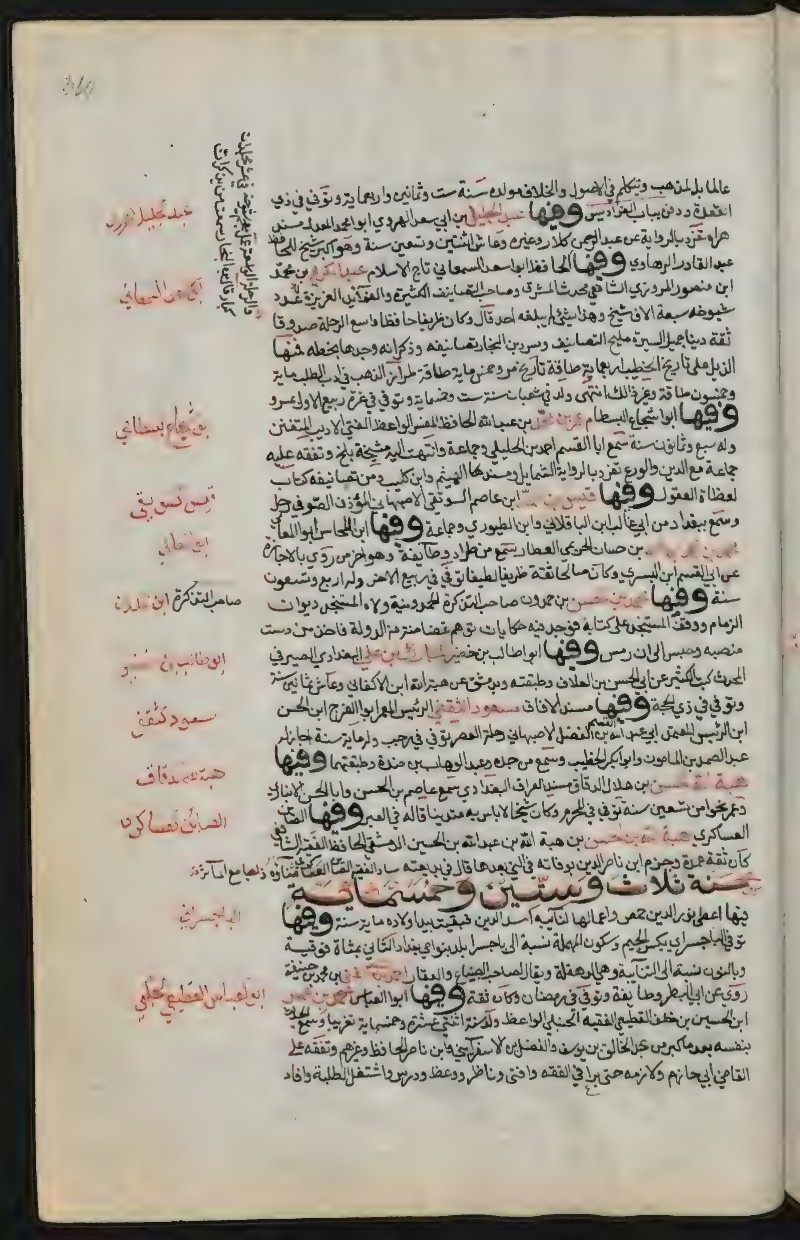 عالما بالمذهب ويتكلم في الاصول والخلاف مولده سنة ست وثمانين واربعماية وتوفي في ذي
القعدة ودفن بباب الفراديس وفيها عبد الجليل بن ابي سعد الهروي ابو محمد المعدل مسند
هراه تفرد بالرواية عن عبد الرحمن كلار وغيره وعاش اثنتين وتسعين سنة وهو اكبر شيخ للحافظ
عبد القادر الرهاوي وفيها الحافظ ابو سعد السمعاني تاج الاسلام عبد الكريم بن محمد
ابن منصور المروزي الشافعي محدث المشرق وصاحب التصانيف الكثيرة والفوائد العزيزة عدد
شيوخه سبعة الاف شيخ وهذا شئ لم يبلغه احد قال وكان ظريفا حافظا واسع الرحلة صدوقا
ثقة دينا جميل السيرة مليح التصانيف وسرد بن النجار تصانيفه وذكر انه وجدها بخطه فمنها
الذيل على تاريخ الخطيب اربعماية طاقة تاريخ مرو خمسماية طاقة طراز الذهب في ادب الطلب ماية
وخمسون طاقة وغير ذلك انتهى ولد في شعبان سنة ست وخمسماية وتوفي في غرة ربيع الاول بمرو
وفيها ابو شجاع البسطامي عمر بن محمد بن عبد الله الحافظ المفسر الواعظ المفتي الاديب المتفنن
وله سبع وثمانون سنة سمع ابا القسم احمد بن الخليلي وجماعة وانتهت اليه مشيخة بلخ وتفقه عليه
جماعة مع الدين والورع تفرد برواية الشمايل ومسند الهيثم بن كليب ومن تصانيفه كتاب
لقطات العقول وفيها قيس بن محمد ابن عاصم السويقي الاصبهاني المؤذن الصوفي رحل
وسمع ببغداد من ابي غالب ابن الباقلاني وابن الطيوري وجماعة وفيها ابن اللحاس ابو المعالي
محمد بن محمد بن محمد بن حسان الحريمي العطار سمع من طراد وطايفة وهو اخر من روى بالاجازة
عن ابي القسم ابن البسري وكان صالحا ثقة ظريفا لطيفا توفي في ربيع الاخر وله اربع وتسعون
سنة وفيها محمد بن حسن بن حمدون صاحب التذكرة الحمدونية ولاه المستنجد ديوان
الزمام ووقف المستنجد على كتابه فوجد فيه حكايات توهم غضا من الدولة فاخذ من دست
منصبه وحبس الى ان رمس وفيها ابو طالب بن خضير المبارك بن علي البغدادي الصيرفي
المحدث كتب الكثير عن ابي الحسن بن العلاف وطبقته وبدمشق عن هبة الله ابن الاكفاني وعاش ثمانين سنة
وتوفي في ذي الحجة وفيها مسند الافاق مسعود الثقفي الرئيس المعمر ابو الفرج ابن الحسن
ابن الرئيس المعتمد ابي عبد الله القسم بن الفضل الاصبهاني رحلة العصر توفي في رجب وله ماية سنة اجاز له
عبد الصمد بن المامون وابو بكر الخطيب وسمع من جده وعبد الوهاب بن مندة وطبقتهما وفيها
هبة الله بن حسن بن هلال الدقاق مسند العراق البغدادي سمع عاصم بن الحسن وابا الحسن الانباري
وعمر نحوا من تسعين سنة توفي في المحرم وكان شيخا لا باس به متدينا قاله في العبر وفيها الصاين
العساكري هبة الله بن حسن بن هبة الله بن عبد الله بن الحسين الدمشقي الحافظ الفقيه الشافعي
كان ثقة عمدة وجزم ابن ناصر الدين بوفاته في التي بعدها قال في بديعته
سنة ثلاث وستين وخمسماية
فيها اعطى نور الدين حمص واعمالها لنايبه اسد الدين فبقيت بيد اولاده ماية سنة وفيها
توفي الباجسراي بكسر الجيم وسكون المهملة نسبة الى باجسرا بلد بنواحي بغداد التاني بمثناة فوقية
وبالنون نسبة الى التنايية وهي الدهقلة ويقال لصاحب الضياع والعقار احمد بن عبد الغني بن محمد بن حنيفة
روى عن ابي البطر وطايفة وتوفي في رمضان وكان ثقة وفيها ابو العباس احمد بن عمر
ابن الحسين بن خلف القطيعي الفقيه الحنبلي الواعظ ولد سنة اثنتي عشرة وخمسماية تقريبا وسمع الحديث
بنفسه بعد ما كبر من عبد الخالق بن يوسف والفضل بن الاسفرايني وابن ناصر الحافظ وغيرهم وتفقه على
القاضي ابي حازم ولازمه حتى برع في الفقه وافتى وناظر ووعظ ودرس واشتغل الطلبة وافاد
عبد الجليل الهروي
ابو سعد السمعاني
ابو شجاع بسطامي
قيس سويقي
ابو المعالي
صاحب التذكرة ابن حمدون
ابو طالب بن خضير
مسعود ثقفي
هبة الله دقاق
الصائن عساكري
الباجسراي
ابو العباس القطيعي الحنبلي